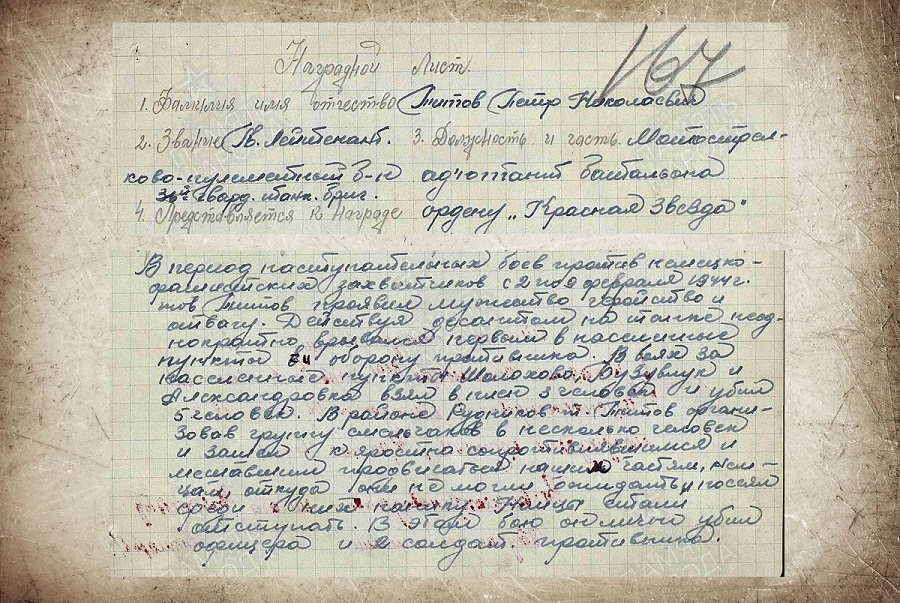 167
Наградной Лист.
1. Фамилия имя отчество Титов Петр Николаевич
2. Звание Гв. Лейтенант. 3. Должность и часть Мотострел-
ково-пулеметный б-н адютант батальона
36й гвард. танк. бриг.
4. Представляется к Награде ордену „Красная Звезда"
В период наступательных боев против немецко-
фашистских захватчиков с 2 по 9 февраля 1944г.
тов Титов проявил мужество геройство и
отвагу. Действуя десантом на танке неод-
нократно врывался первым в населенные
пункты и оборону противника. В боях за
населенные пункты Шолохово, Бузувлук и
Александровка взял в плен 3 человек и убил
5 человек. В районе т. Титов органи-
зовав группу смельчаков в несколько человек
и зашел к яростно сопротивлявшимся и
мешавшим продвигаться нашим частям, нем-
цам, откуда они не могли ожидать, и посеял
среди них панику. Немцы стали
отступать. В этом бою он лично убил
офицера и 2 солдат. противника.